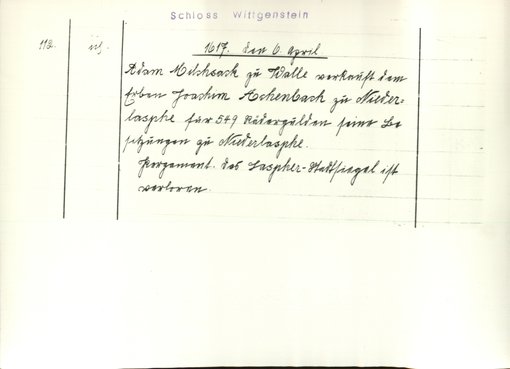 Schloss Wittgenstein
112.
1617. den 6. April.
Adam Milchsack zu Walle verkauft dem
Erben Joachim Achenbach zu Nieder-
lasphe für 549 Rädergulden seine Be-
sitzungen zu Niederlasphe.
Pergament. Das Laspher-Stadtsiegel ist
verloren.